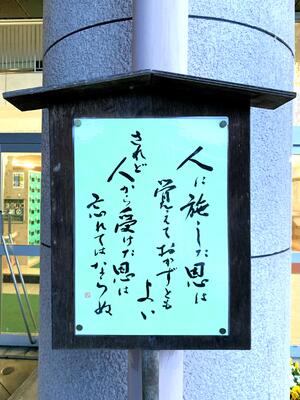 人に施した恩は
覚えておかずとも
よい
されど
人から受けた恩は
忘れてはならぬ